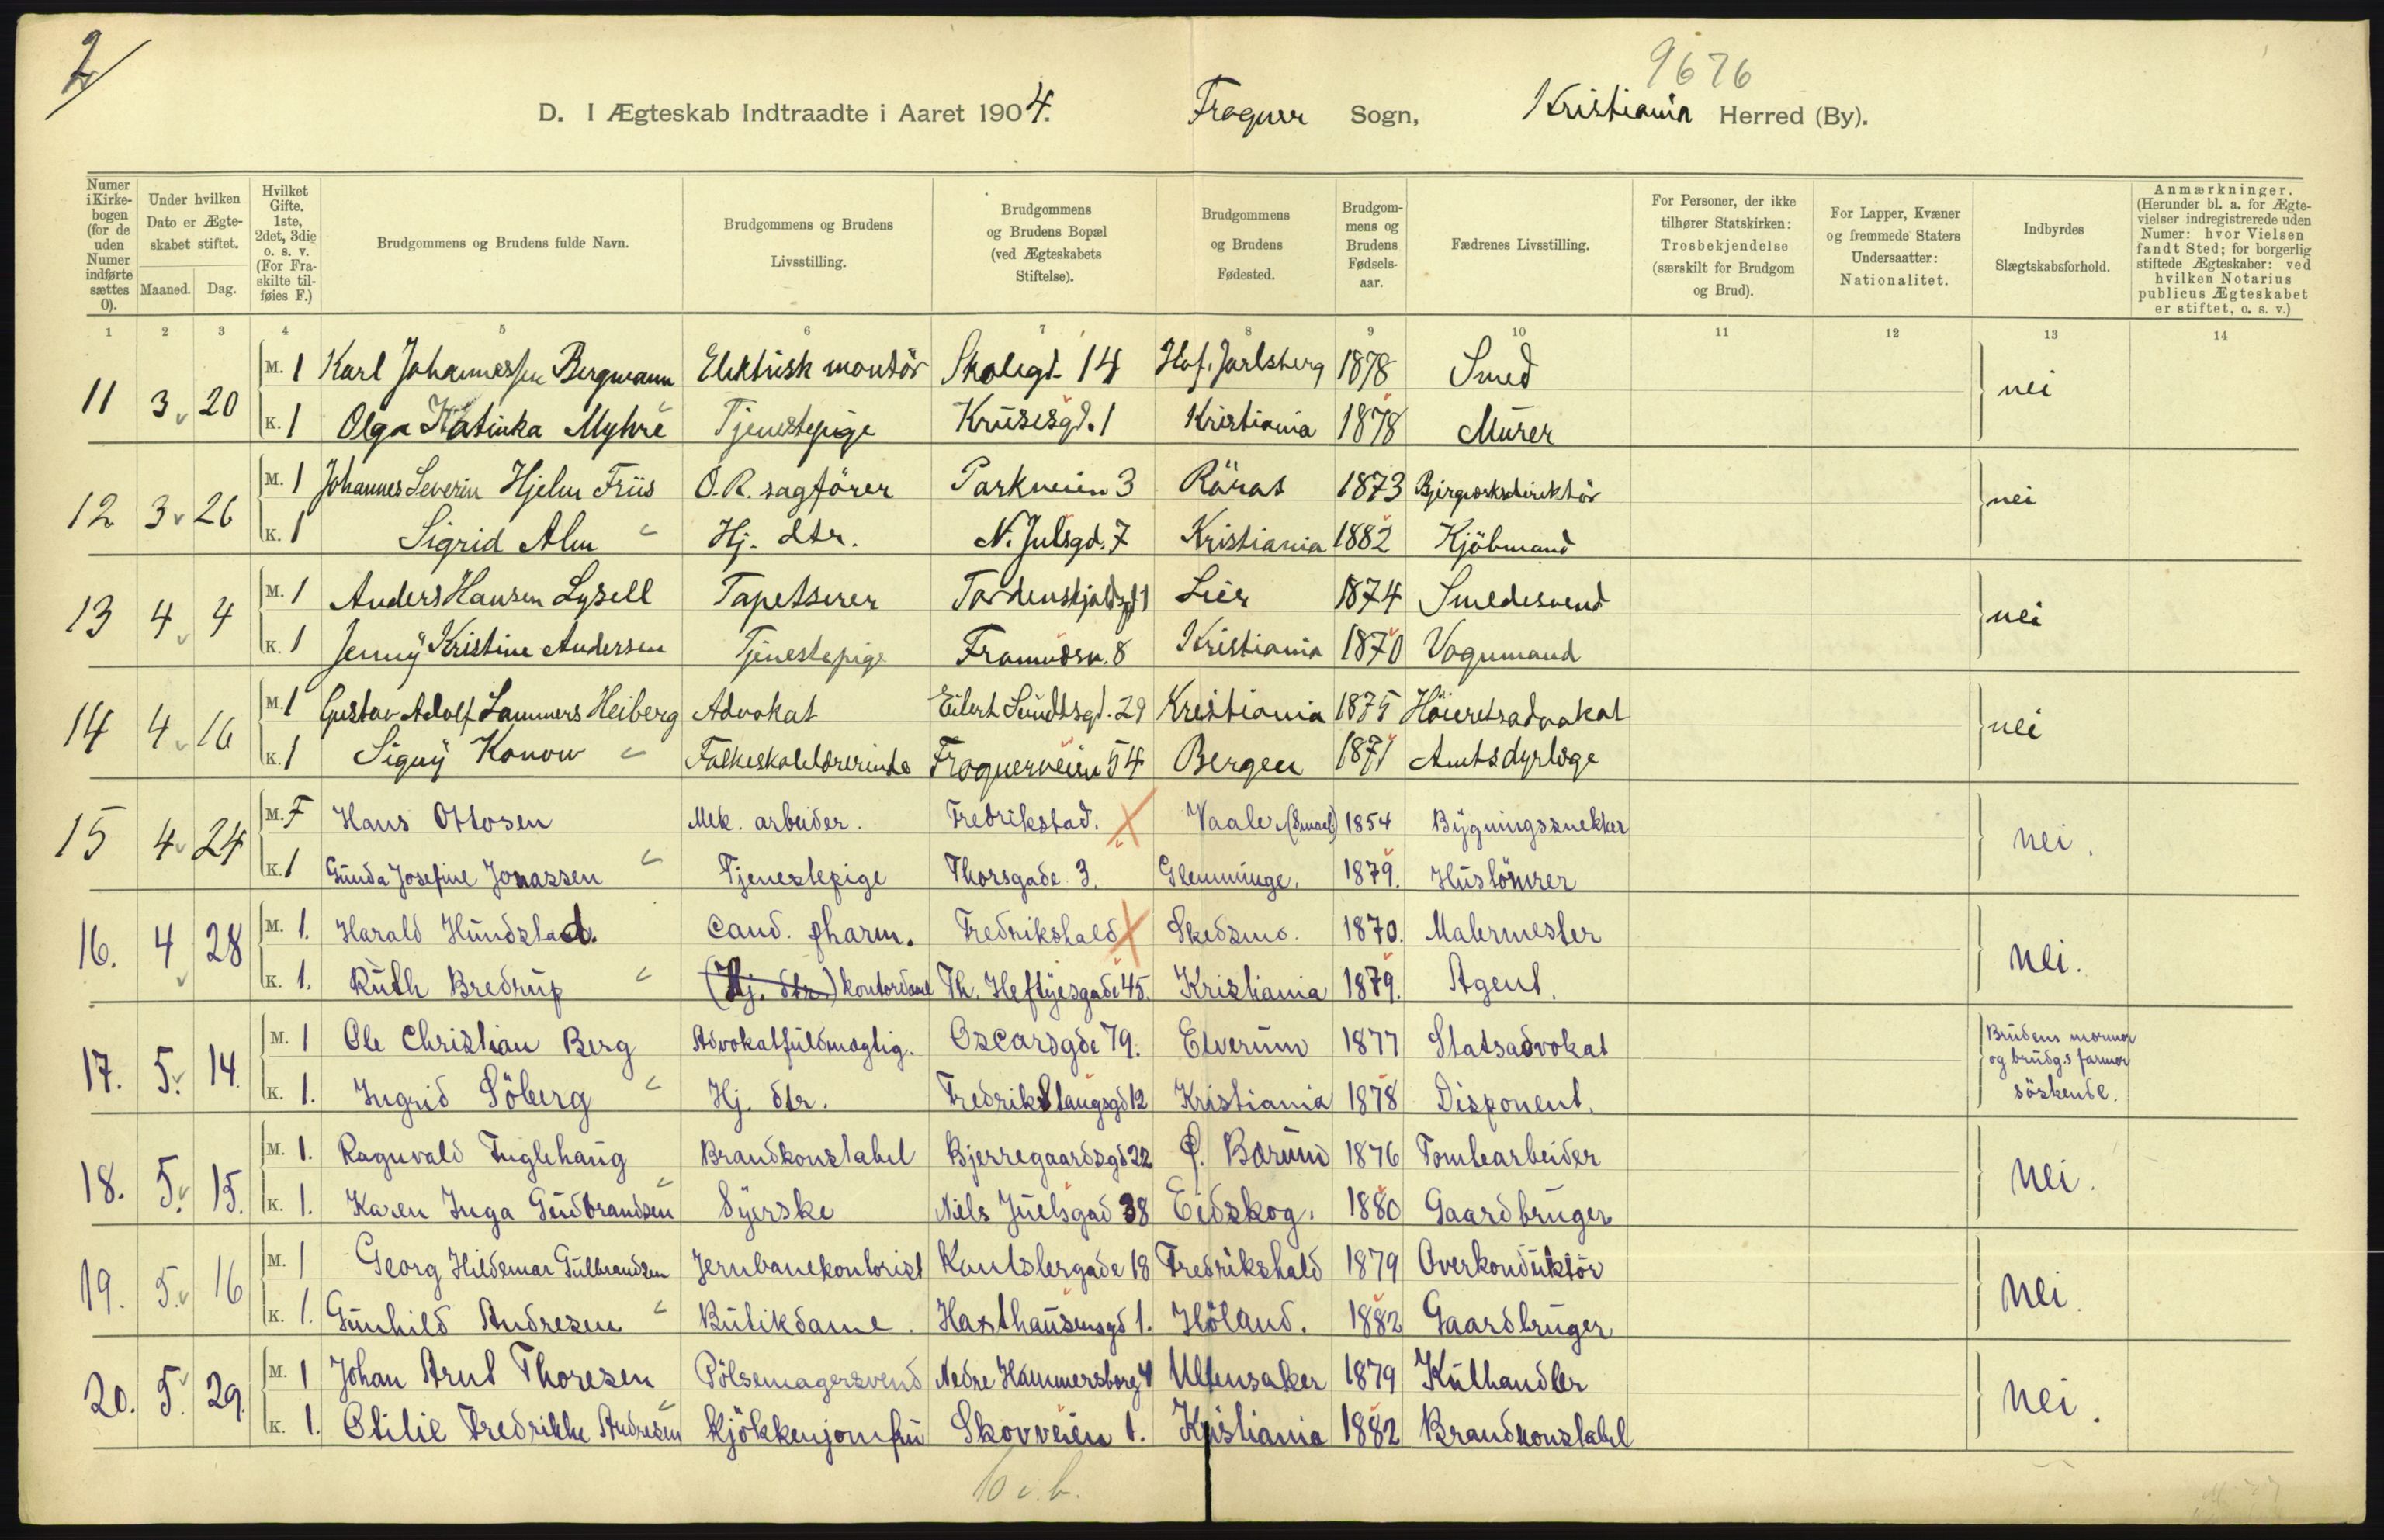 2
9676
D. I Ægteskab Indtraadte i Aaret 1904. Frogner Sogn, Kristiania Herred (By).
Numer i Kirkebogen (for de uden Numer indførte sættes 0).
Under hvilken Dato er Ægteskabet stiftet.
Maaned. Dag.
Hvilket Gifte. 1ste, 2det, 3die o. s. v. (For Fraskilte tilføies F.)
Brudgommens og Brudens fulde Navn.
Brudgommens og Brudens Livsstilling.
Brudgommens og Brudens Bopæl (ved Ægteskabets Stiftelse).
Brudgommens og Brudens Fødested.
Brudgommens og Brudens Fødselsaar.
Fædrenes Livsstilling.
For Personer, der ikke tilhører Statskirken: Trosbekjendelse (særskilt for Brudgom og Brud).
For Lapper, Kvæner og fremmede Staters Undersaatter: Nationalitet.
Indbyrdes Slægtskabsforhold.
Anmærkninger. (Herunder bl. a. for Ægtevielser indregistrerede uden Numer: hvor Vielsen fandt Sted; for borgerlig stiftede Ægteskaber: ved hvilken Notarius publicus Ægteskabet er stiftet, o. s. v.)
1 2 3 4 5 6 7 8 9 10 11 12 13 14
11 3 20 M. 1 Karl Johannessen Bergmann Elektrisk montör Skolegd. 14 Hof, Jarlsberg 1878 Smed nei
K. 1 Olga Katinka Myhre Tjenestepige Krusesgd. 1 Kristiania 1878 Murer
12 3 26 M. 1 Johannes Severin Hjelm Friis O.R. sagförer Parkveien 3 Röros 1873 Bjergværksdirektör nei
K. 1 Sigrid Alm Hj. dtr. N. Julsgd. 7 Kristiania 1882 Kjöbmand
13 4 4 M. 1 Anders Hansen Lysell Tapetserer Tordenskjoldsgd 1 Lier 1874 Smedesvend nei
K. 1 Jenny Kristine Andersen Tjenestepige Framnæsv. 8 Kristiania 1870 Vognmand
14 4 16 M. 1 Gustav Adolf Lammers Heiberg Advokat Eilert Sundtsgd. 29 Kristiania 1875 Höieretsadvokat nei
K. 1 Signy Konow Folkeskolelærerinde Frognerveien 54 Bergen 1871 Amtsdyrlæge
15 4 24 M. F Hans Ottosen Mek. arbeider. Fredrikstad. Vaaler (Smaal) 1854 Bygningssnekker nei.
K. 1 Gunda Josefine Jonassen Tjenestepige Thorsgade 3. Glemminge. 1879. Huslömrer
16. 4 28 M. 1. Harald Hundstad. Cand. pharm. Fredrikshald Skedsmo. 1870. Malermester nei.
K. 1. Ruth Bredrup (Hj. dtr.) kontordame Th. Heftyesgade 45. Kristiania 1879. Agent.
17. 5. 14. M. 1 Ole Christian Berg Advokatfuldmægtig. Oscarsgde 79. Elverum 1877 Statsadvokat Brudens mormor og brudg.s farmor söskende.
K. 1. Ingrid Söberg Hj. dtr. Fredrik Stangsgd 12 Kristiania 1878 Disponent.
18. 5. 15. M. 1. Ragnvald Fuglehaug Brandkonstabel Bjerregaardsgd 22 Ø. Bærum 1876 Tomtearbeider nei.
K. 1. Karen Inga Gudbrandsen Syerske Niels Juelsgad 38 Eidskog. 1880 Gaardbruger
19. 5. 16 M. 1 Georg Hildemar Gulbrandsen Jernbanekontorist Huntslergade 18 Fredrikshald 1879 Overkonduktör nei.
K. 1. Gunhild Andresen Butikdame. Haxthausensgd 1. Höland. 1882 Gaardbruger
20. 5. 29. M. 1 Johan Arnt Thoresen Pölsemagersvend Nedre Hammersborg 4 Ullensaker 1879 Kulhandler nei.
K. 1. Otilie Fredrikke Andresen Kjökkenjomfru Skovveien 1. Kristiania 1882 Brandkonstabel